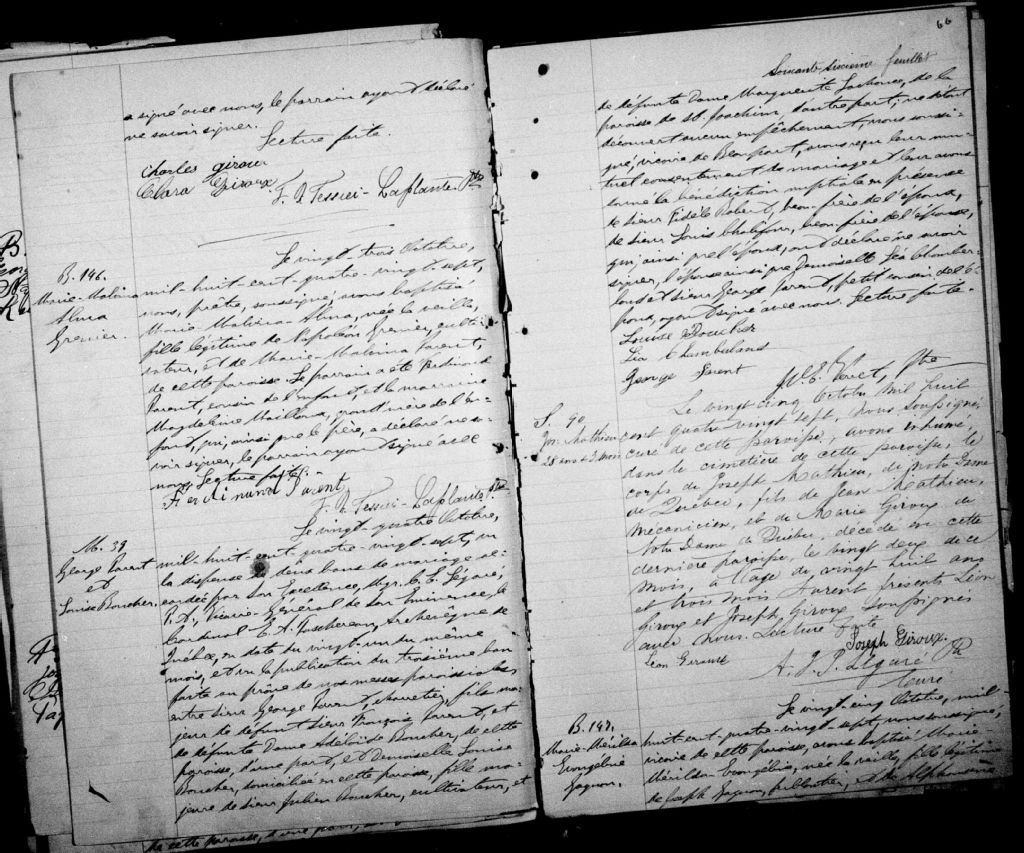 a signé avec nous, le parrain ayant déclaré
ne savoir signer.
Lecture faite.
Charles giroux
Clara Giroux
F. X. Tessier-Laplante Ptre
B. 146.
Marie-Malvina
Alma
Grenier.
Le vingt-trois Octobre,
mil-huit-cent-quatre-vingt-sept,
nous, prêtre, soussigné, avons baptisé
Marie Malvina-Alma, née la veille,
fille légitime de Napoléon Grenier, culti-
vateur, et de Marie-Malvina Parent,
de cette paroisse. Le parrain a été Ferdinand
Parent, cousin de l'enfant, et la marraine
Magdeleine Mailloux, grand'mère de l'en-
fant, qui, ainsi que le père, a déclaré ne sa-
voir signer, le parrain ayant signé avec
nous. Lecture faite.
Ferdinand Parent
F. X. Tessier-Laplante Ptre
M. 39
George Parent
et
Louise Boucher.
Le vingt-quatre Octobre,
mil-huit-cent-quatre-vingt-sept, vu
la dispense de deux bans de mariage ac-
cordée par Son Excellence, Mgr. C. E. Légaré,
P. A., Vicaire-Général de Son Eminence, le
Cardinal E. A. Taschereau, Archevêque de
Québec, en date du vingt-un du même
mois, et vu la publication du troisième ban
faite au prône de nos messes paroissiales
entre Sieur George Parent, charretier, fils ma-
jeur de défunt Sieur François Parent, et
de défunte Dame Adélaïde Boucher, de cette
paroisse, d'une part, et Demoiselle Louise
Boucher, domiciliée en cette paroisse, fille ma-
jeure de Sieur Julien Boucher, cultivateur, et
66
Soixante sixième feuillet
de défunte Dame Marguerite Lachance, de la
paroisse de St. Joachim, d'autre part; ne s'étant
découvert aucun empêchement, nous soussi-
gné, vicaire de Beauport, avons reçu leur mu-
tuel consentement de mariage et leur avons
donné la bénédiction nuptiale en présence
de Sieur Fidèle Robert, beau-frère de l'époux,
de Sieur Louis Chalifour, beau-frère de l'épouse,
qui, ainsi que l'époux, ont déclaré ne savoir
signer, l'épouse ainsi que Demoiselle Léa Chamber-
land et Sieur George Parent, petit cousin de l'é-
poux, ayant signé avec nous. Lecture faite.
Louise Boucher
Léa Chamberland
George Parent
Ptre
S. 90
Jos. Mathieu
28 ans & 3 mois
Le vingt cinq Octobre mil huit
cent quatre vingt sept, nous soussigné,
curé de cette paroisse, avons inhumé,
dans le cimetière de cette paroisse, le
corps de Joseph Mathieu, de Notre Dame
de Québec, fils de Jean Mathieu,
mécanicien, et de Marie Giroux de
Notre Dame de Québec, décédé en cette
dernière paroisse, le vingt deux de ce
mois, à l'âge de vingt huit ans
et trois mois. Furent présents Léon
Giroux et Joseph Giroux soussignés
avec nous. Lecture faite
Léon Giroux
Joseph Giroux.
A. J. P. Légaré Ptre
Curé
B. 147.
Marie-Mérilda
Evangéline
Gagnon.
Le vingt-cinq Octobre, mil-
huit-cent-quatre-vingt-sept, nous soussigné,
vicaire de cette paroisse, avons baptisé Marie-
Mérilda-Evangéline, née la veille, fille légitime
de Joseph Gagnon, ferblantier, et de Alphonsine